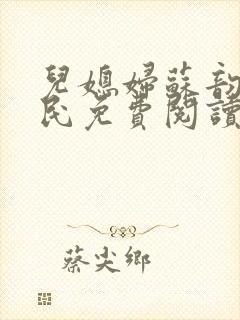 兒媳婦蘇韵
民免費閱讀
蔡尖鄉